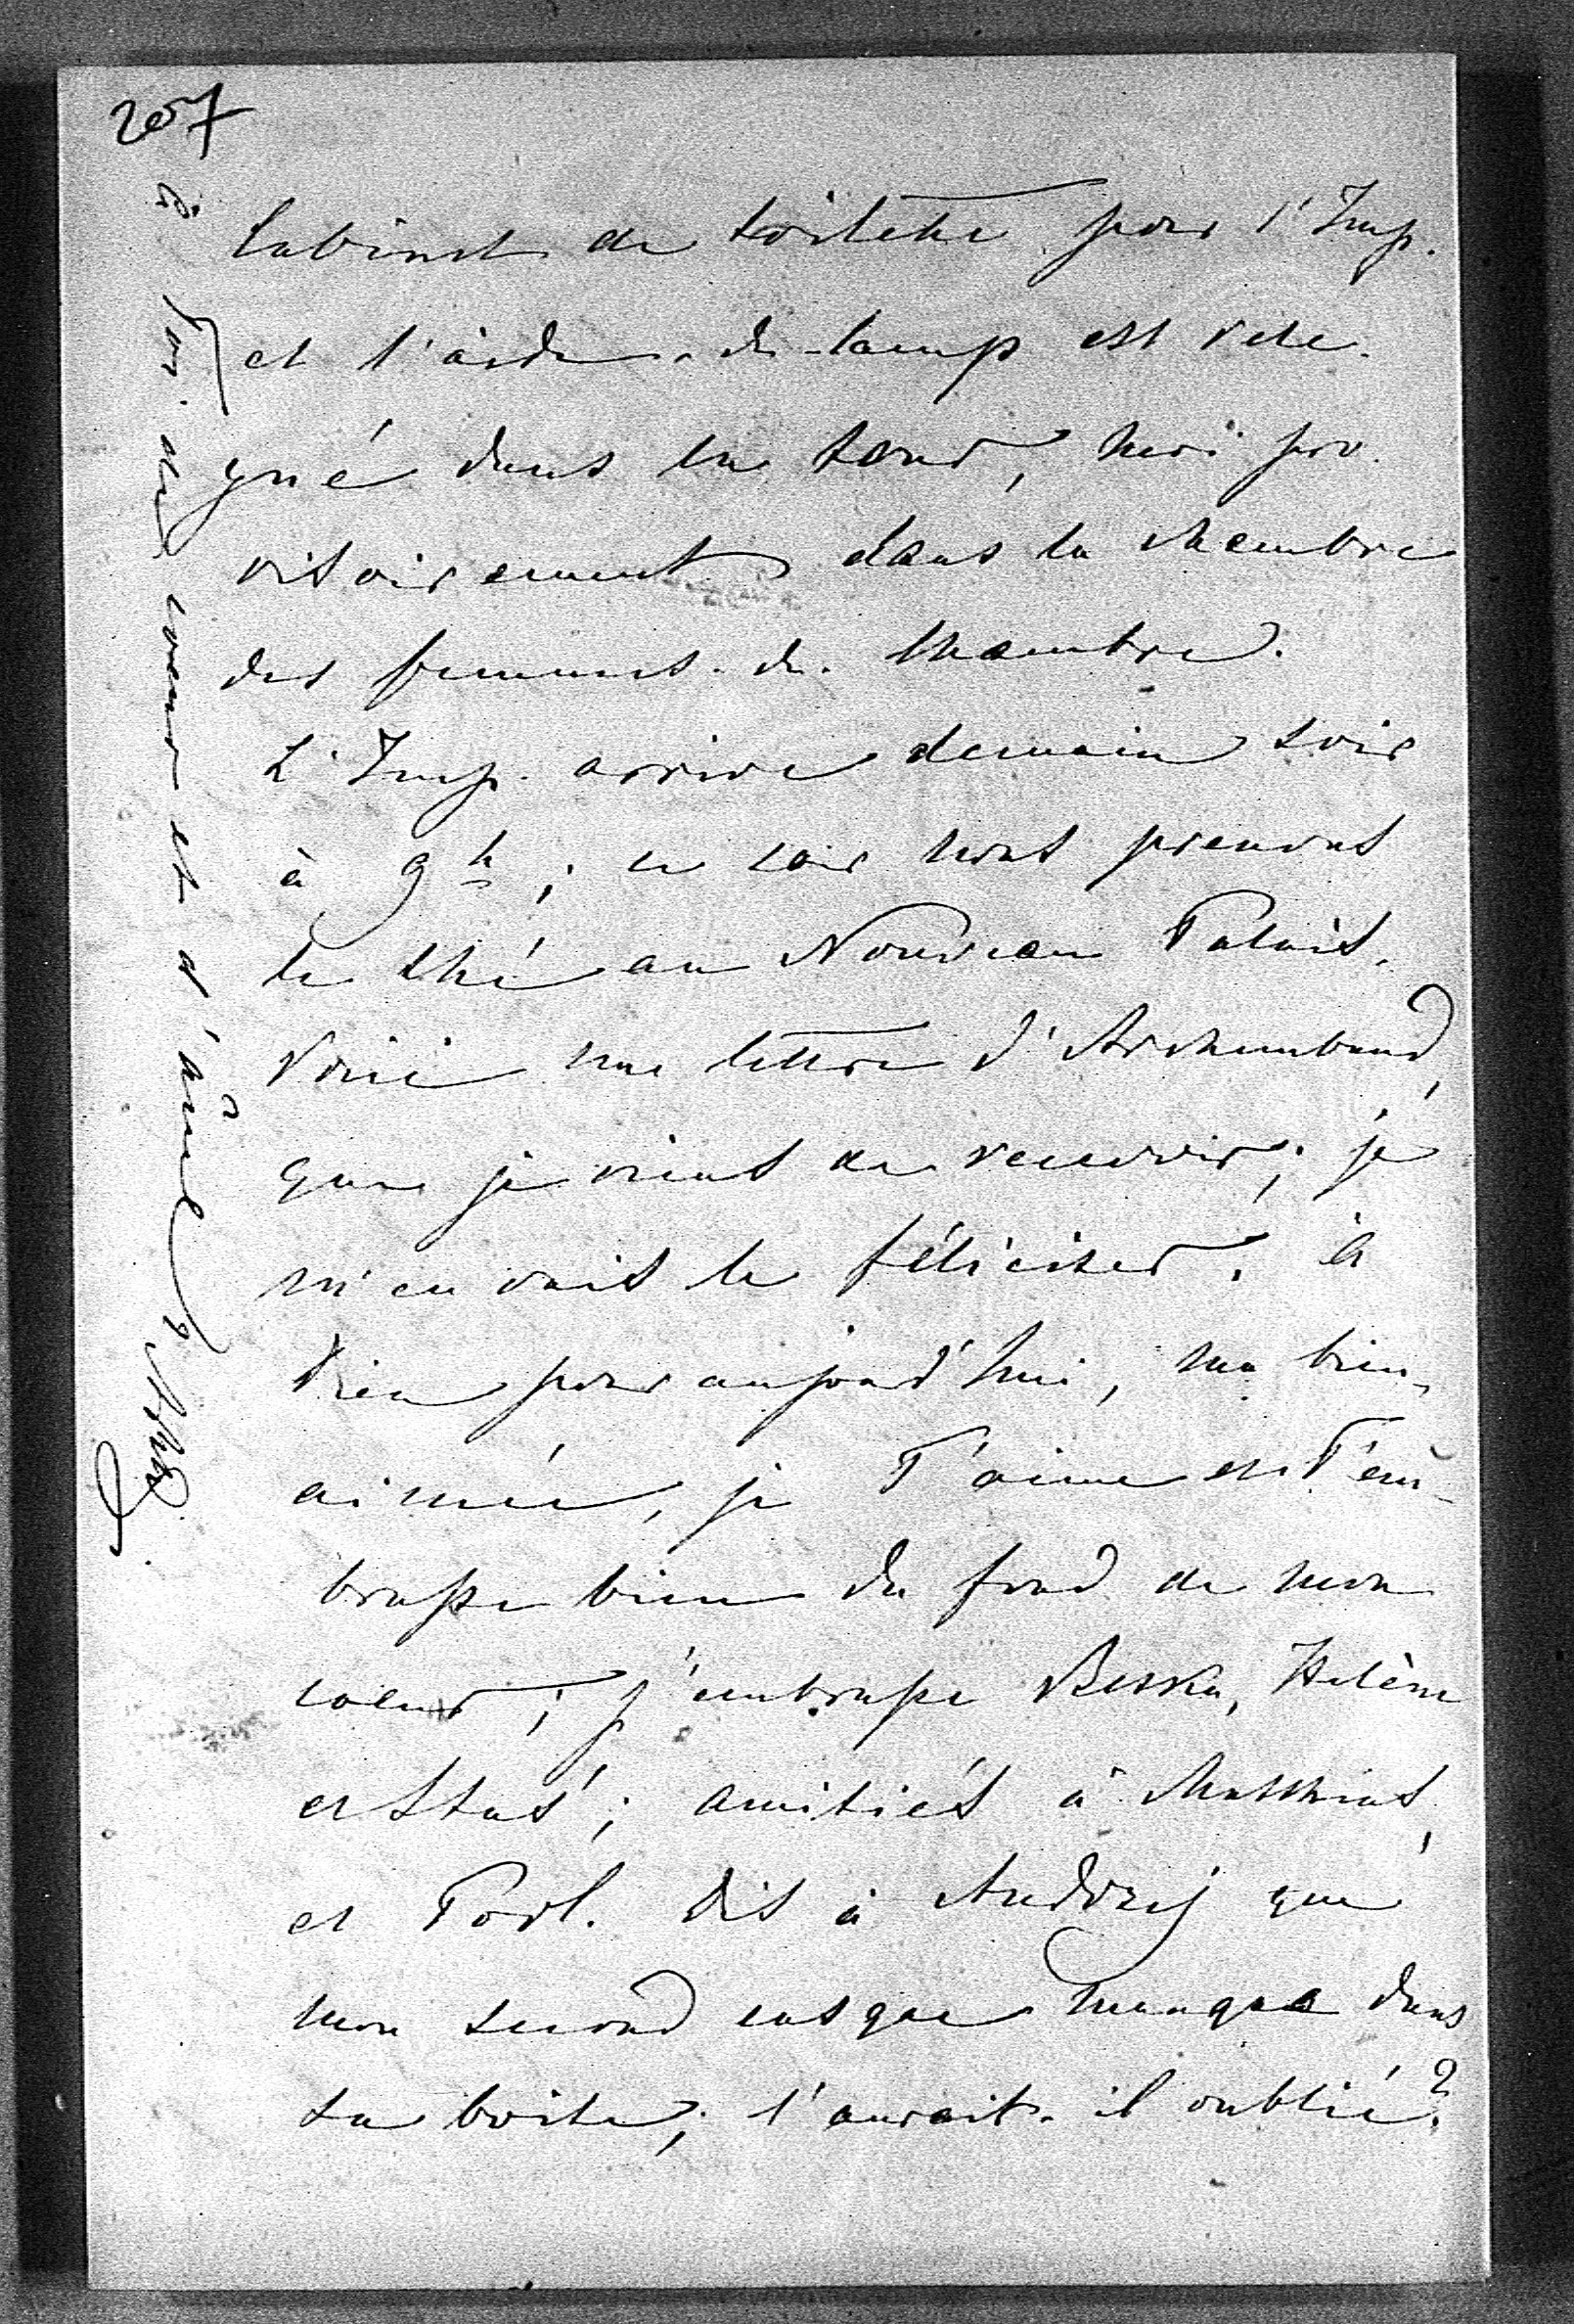 207
cabinet de toilette pour l'Imp.
et l'aide-de-camp est relé-
gué dans la tour, moi pro-
visoirement dans la chambre
des femmes-de-chambre.
L'Imp. arrive demain soir
à 9 h; ce soir nous prenons
le thé au Nouveau Palais.
Voici une lettre d'Archambaud,
que je viens de recevoir; je
m'en vais le féliciter. à
Dieu pour aujourd'hui, ma bien-
aimée, je T'aime et T'em-
brasse bien du fond de mon
coeur; j'embrasse Biska, Hélène
et Stas; amitiés à Mathias,
et Povl. Dis à Andrzej que
mon second casque manque dans
sa boîte; l'aurait-il oublié?
à Toi de coeur et d'âme